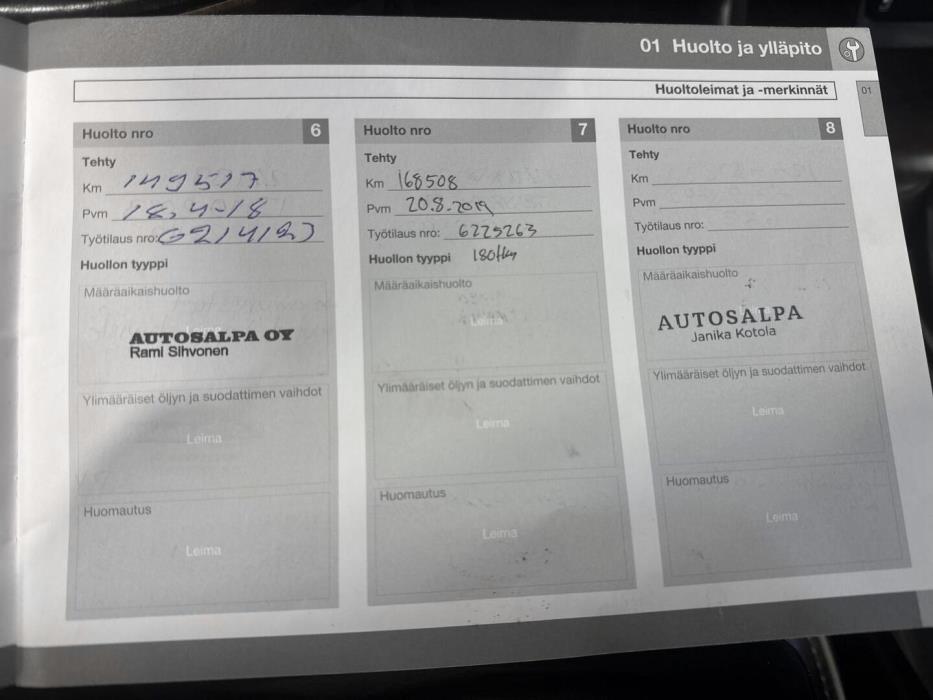 01 Huolto ja ylläpito
Huoltoleimat ja -merkinnät
01
Huolto nro 6
Tehty
Km 149517
Pvm 18.4-18
Työtilaus nro:
Huollon tyyppi
Määräaikaishuolto
Leima
AUTOSALPA OY
Rami Sihvonen
Ylimääräiset öljyn ja suodattimen vaihdot
Leima
Huomautus
Leima
Huolto nro 7
Tehty
Km 168508
Pvm 20.8.2019
Työtilaus nro: 6225263
Huollon tyyppi
Määräaikaishuolto
Leima
Ylimääräiset öljyn ja suodattimen vaihdot
Leima
Huomautus
Leima
Huolto nro 8
Tehty
Km
Pvm
Työtilaus nro:
Huollon tyyppi
Määräaikaishuolto
AUTOSALPA
Janika Kotola
Ylimääräiset öljyn ja suodattimen vaihdot
Leima
Huomautus
Leima